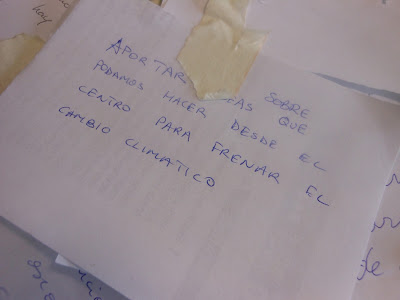 hay
APORTAR EAS SOBRE
PODAMOS HACER QUE
CENTRO PARA DESDE EL
CAMBIO CLIMATICO FRENAR EL